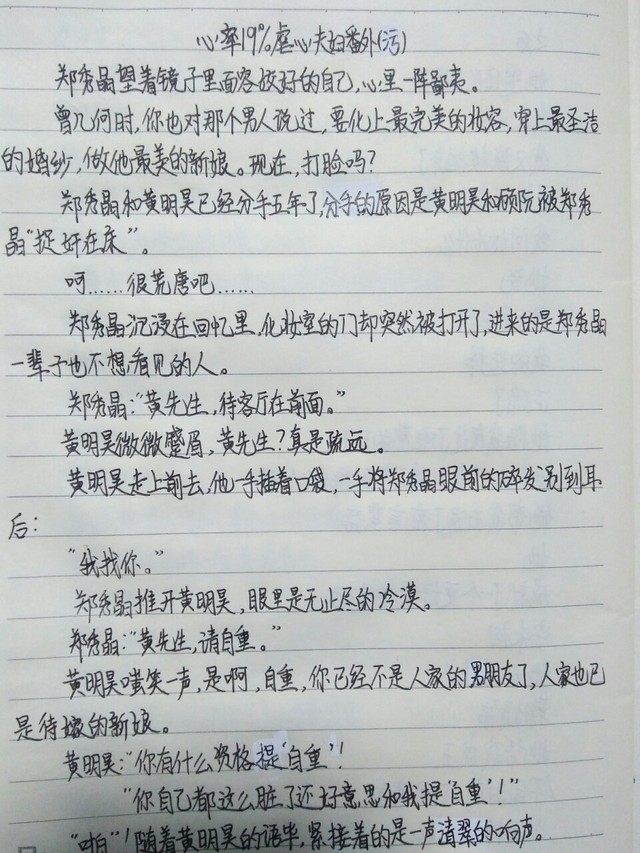 心率19%虐心夫妇番外(污)
郑秀晶望着镜子里面容姣好的自己,心里一阵鄙夷。
曾几何时,你也对那个男人说过,要化上最完美的妆容,穿上最圣洁
的婚纱,做他最美的新娘。现在,打脸吗?
郑秀晶和黄明昊已经分手五年了,分手的原因是黄明昊和顾阮被郑秀
晶“捉奸在床”。
呵……很荒唐吧……
郑秀晶沉浸在回忆里,化妆室的门却突然被打开了,进来的是郑秀晶
一辈子也不想看见的人。
郑秀晶:“黄先生,待客厅在前面。”
黄明昊微微蹙眉,黄先生?真是疏远。
黄明昊走上前去,他一手插着口袋,一手将郑秀晶眼前的碎发别到耳
后:
“我找你。”
郑秀晶推开黄明昊,眼里是无止尽的冷漠。
郑秀晶:“黄先生,请自重。”
黄明昊嗤笑一声,是啊,自重,你已经不是人家的男朋友了,人家也已
是待嫁的新娘。
黄明昊:“你有什么资格提‘自重’!
“你自己都这么脏了还好意思和我提‘自重’!”
“啪”!随着黄明昊的语毕,紧接着的是一声清翠的响声。